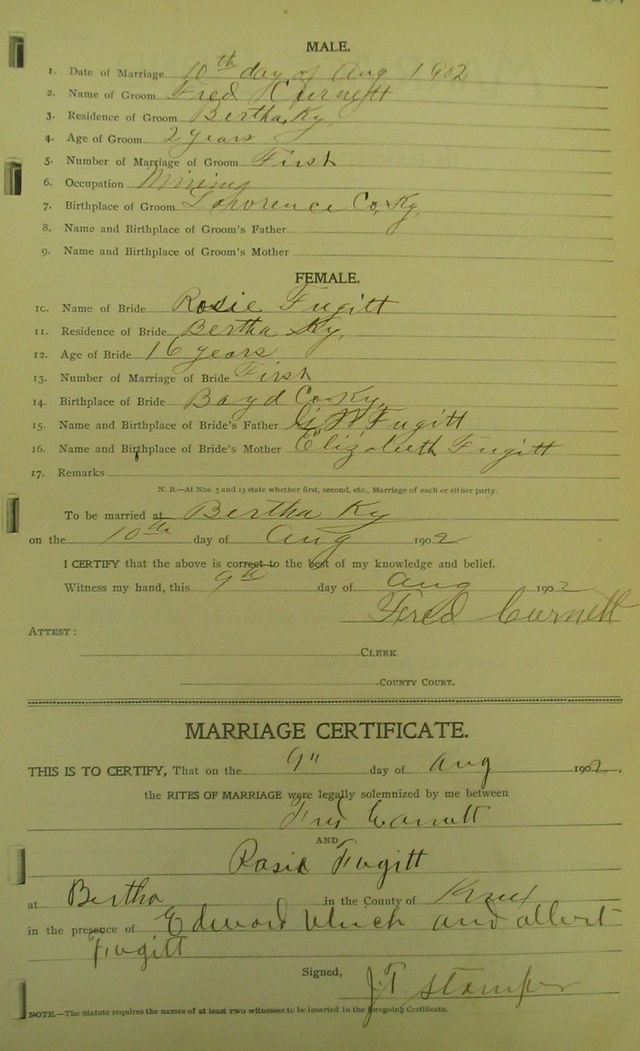 MALE.
1. Date of Marriage 10th day of Aug 1902
2. Name of Groom Fred Curnett
3. Residence of Groom Bertha, Ky.
4. Age of Groom 2 years
5. Number of Marriage of Groom First
6. Occupation Mining
7. Birthplace of Groom Lawrence Co, Ky,
8. Name and Birthplace of Groom's Father
9. Name and Birthplace of Groom's Mother
FEMALE.
10. Name of Bride Rosie Fugitt
11. Residence of Bride Bertha Ky,
12. Age of Bride 16 years
13. Number of Marriage of Bride First
14. Birthplace of Bride Boyd Co Ky,
15. Name and Birthplace of Bride's Father Fugitt
16. Name and Birthplace of Bride's Mother Elizabeth Fugitt
17. Remarks
N. B.—At Nos. 5 and 13 state whether first, second, etc., Marriage of each or either party.
To be married at Bertha Ky
on the 10th day of Aug 1902
I CERTIFY that the above is correct to the best of my knowledge and belief.
Witness my hand, this 9th day of Aug 1902
Fred Curnett
ATTEST:
CLERK
COUNTY COURT.
MARRIAGE CERTIFICATE.
THIS IS TO CERTIFY, That on the 9" day of Aug 1902,
the RITES OF MARRIAGE were legally solemnized by me between
Fred Curnutt
AND
Rosie Fugitt
at Bertha in the County of Knox
in the presence of Edward and Albert
Fugitt
Signed, J.T. Stamper
NOTE.—The Statute requires the names of at least two witnesses to be inserted in the foregoing Certificate.